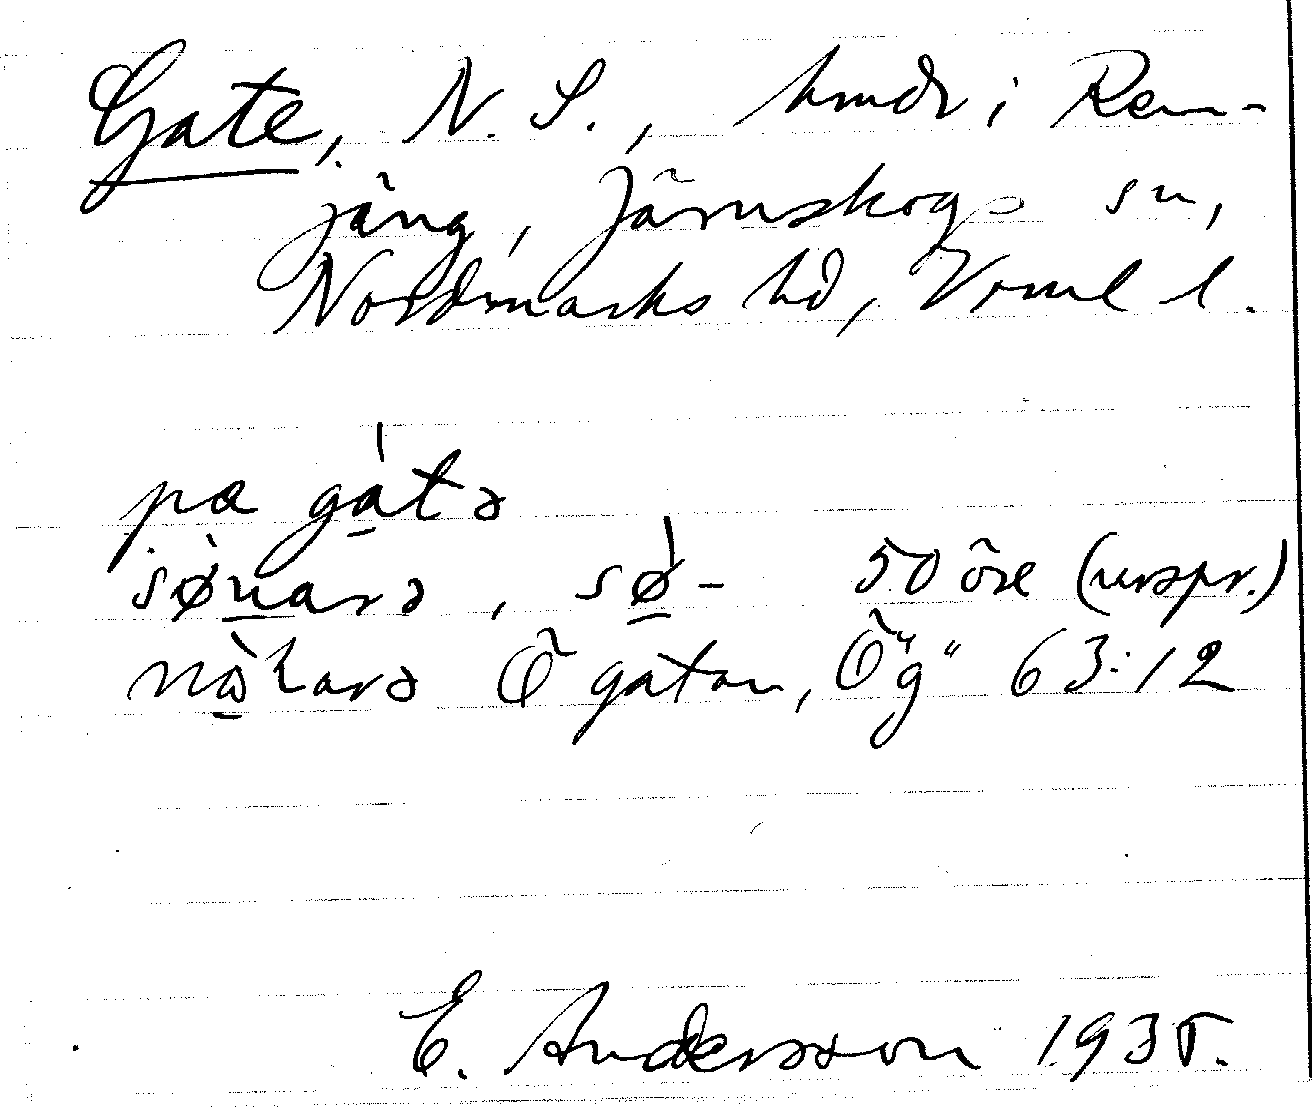 Gate, N. S., hmdr i Ren-
jäng, Järnskogs sn,
Nordmarks hd, Vrml l.
pæ gátə
sø̀narə, sǿ- 50 öre (urspr.)
nòlarə Ö gatan, Ö "g" 63:12
E. Andersson 1935.